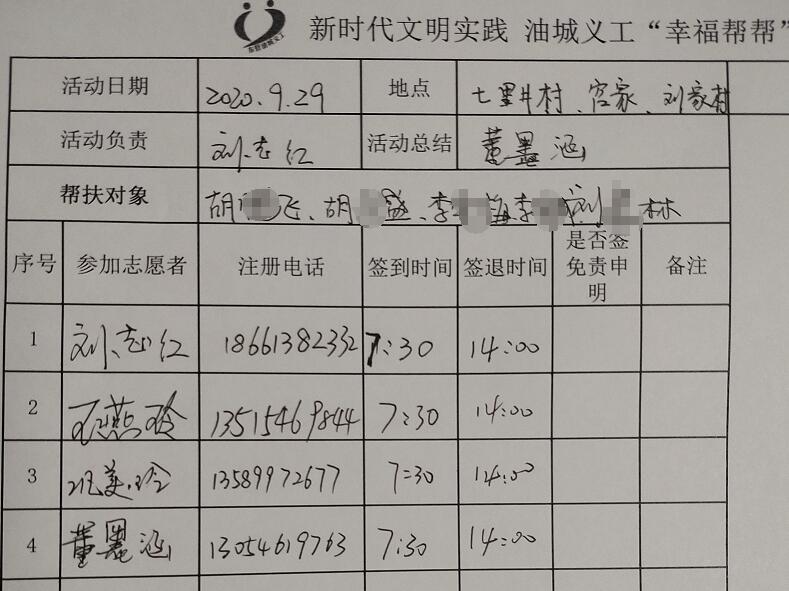 新时代文明实践 油城义工“幸福帮帮”
活动日期 2020.9.29 地点 七里井村、宫家、刘家村
活动负责 刘志红 活动总结 董墨涵
帮扶对象 胡 飞、胡 盛、李 海 李 刘 林
序号 参加志愿者 注册电话 签到时间 签退时间 是否签免责申明 备注
1 刘志红 18661382332 7:30 14:00
2 燕玲 13515469844 7:30 14:00
3 美玲 13589972677 7:30 14:00
4 董墨涵 13054619763 7:30 14:00